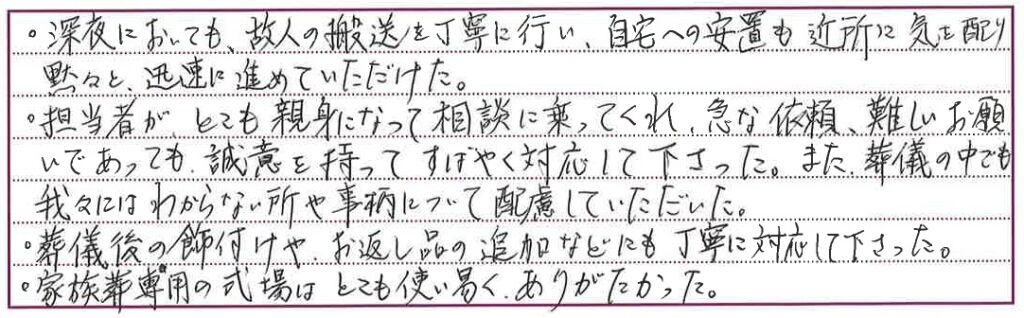 。深夜においても、故人の搬送を丁寧に行い、自宅への安置も近所に気を配り
黙々と、迅速に進めていただけた。
。担当者が、とても親身になって相談に乗ってくれ、急な依頼、難しいお願
いであっても、誠意を持ってすばやく対応して下さった。また、葬儀の中でも
我々にはわからない所や事柄について配慮していただいた。
。葬儀後の飾付けや、お返し品の追加などにも丁寧に対応して下さった。
。家族葬専用の式場はとても使い易く、ありがたかった。